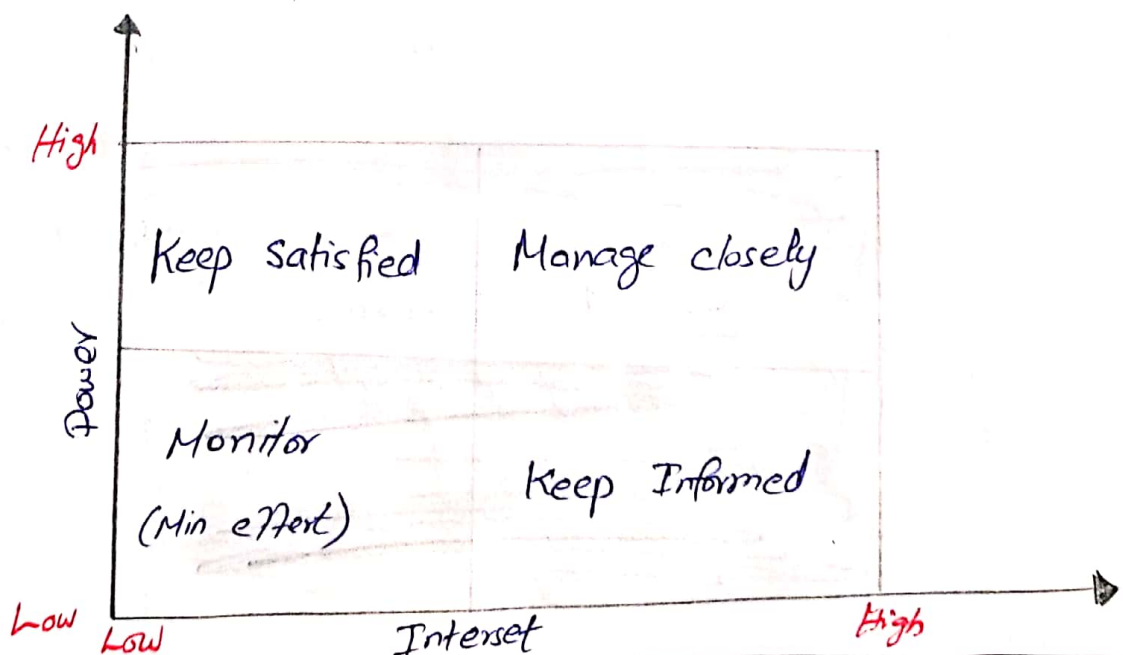 High
Keep satisfied
Manage closely
Power
Monitor
(Min effert)
Keep Informed
Low
Low
Interset
High